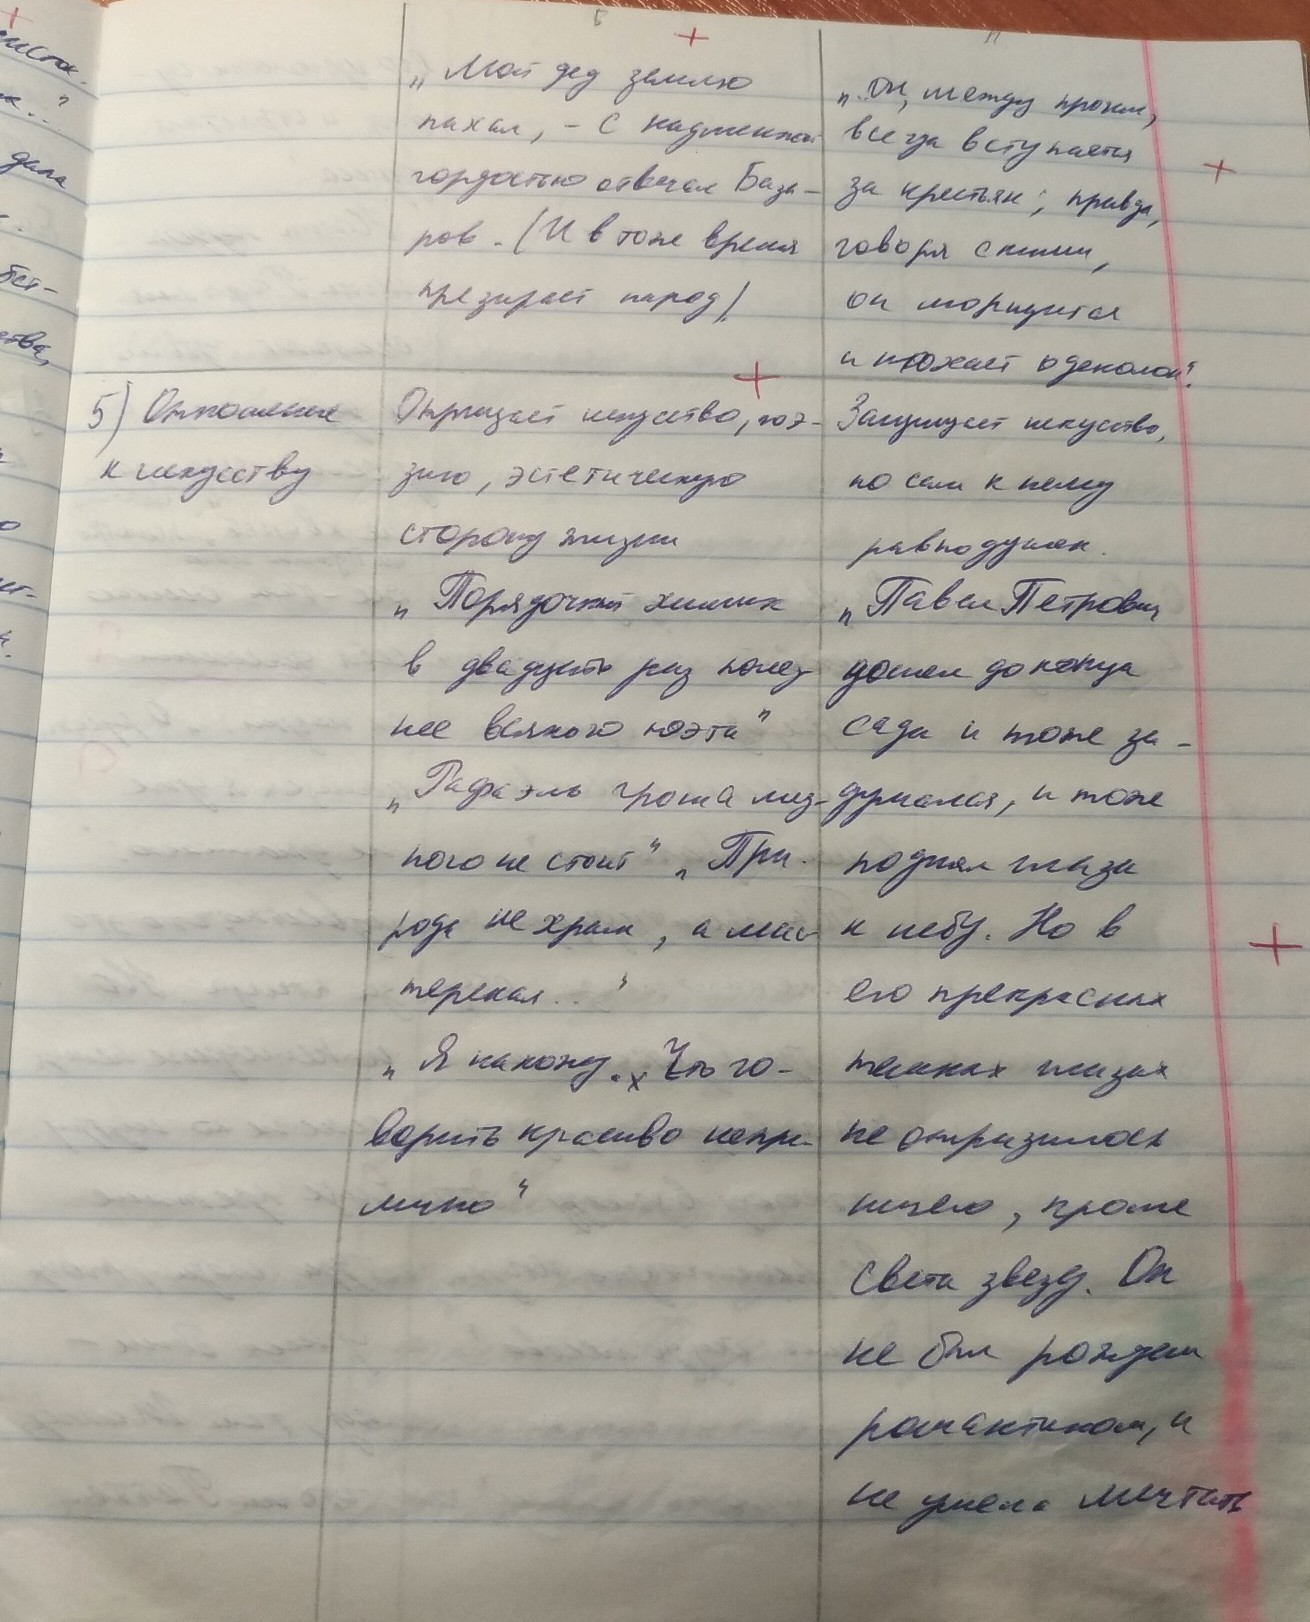 Б
П
„Мой дед землю
пахал, - с надменной
гордостью отвечал База-
ров. (И в тоже время
презирает народ)
„он, между прочим,
всегда вступается
за крестьян; правда,
говоря с ними,
он морщится
и нюхает одеколон".
5) Отношение
к искусству
Отрицает искусство, поэ-
зию, эстетическую
сторону жизни
„Порядочный химик
в двадцать раз полез-
нее всякого поэта"
„Рафаэль гроша мед-
ного не стоит" „При-
рода не храм, а мас-
терская..."
„Я нахожу. Что го-
ворить красиво непри-
лично"
Защищает искусство,
но сам к нему
равнодушен.
„Павел Петрович
дошел до конца
сада и тоже за-
думался, и тоже
поднял глаза
к небу. Но в
его прекрасных
темных глазах
не отразилось
ничего, кроме
света звезд. Он
не был рожден
романтиком, и
не умела мечтать
дала
ства,